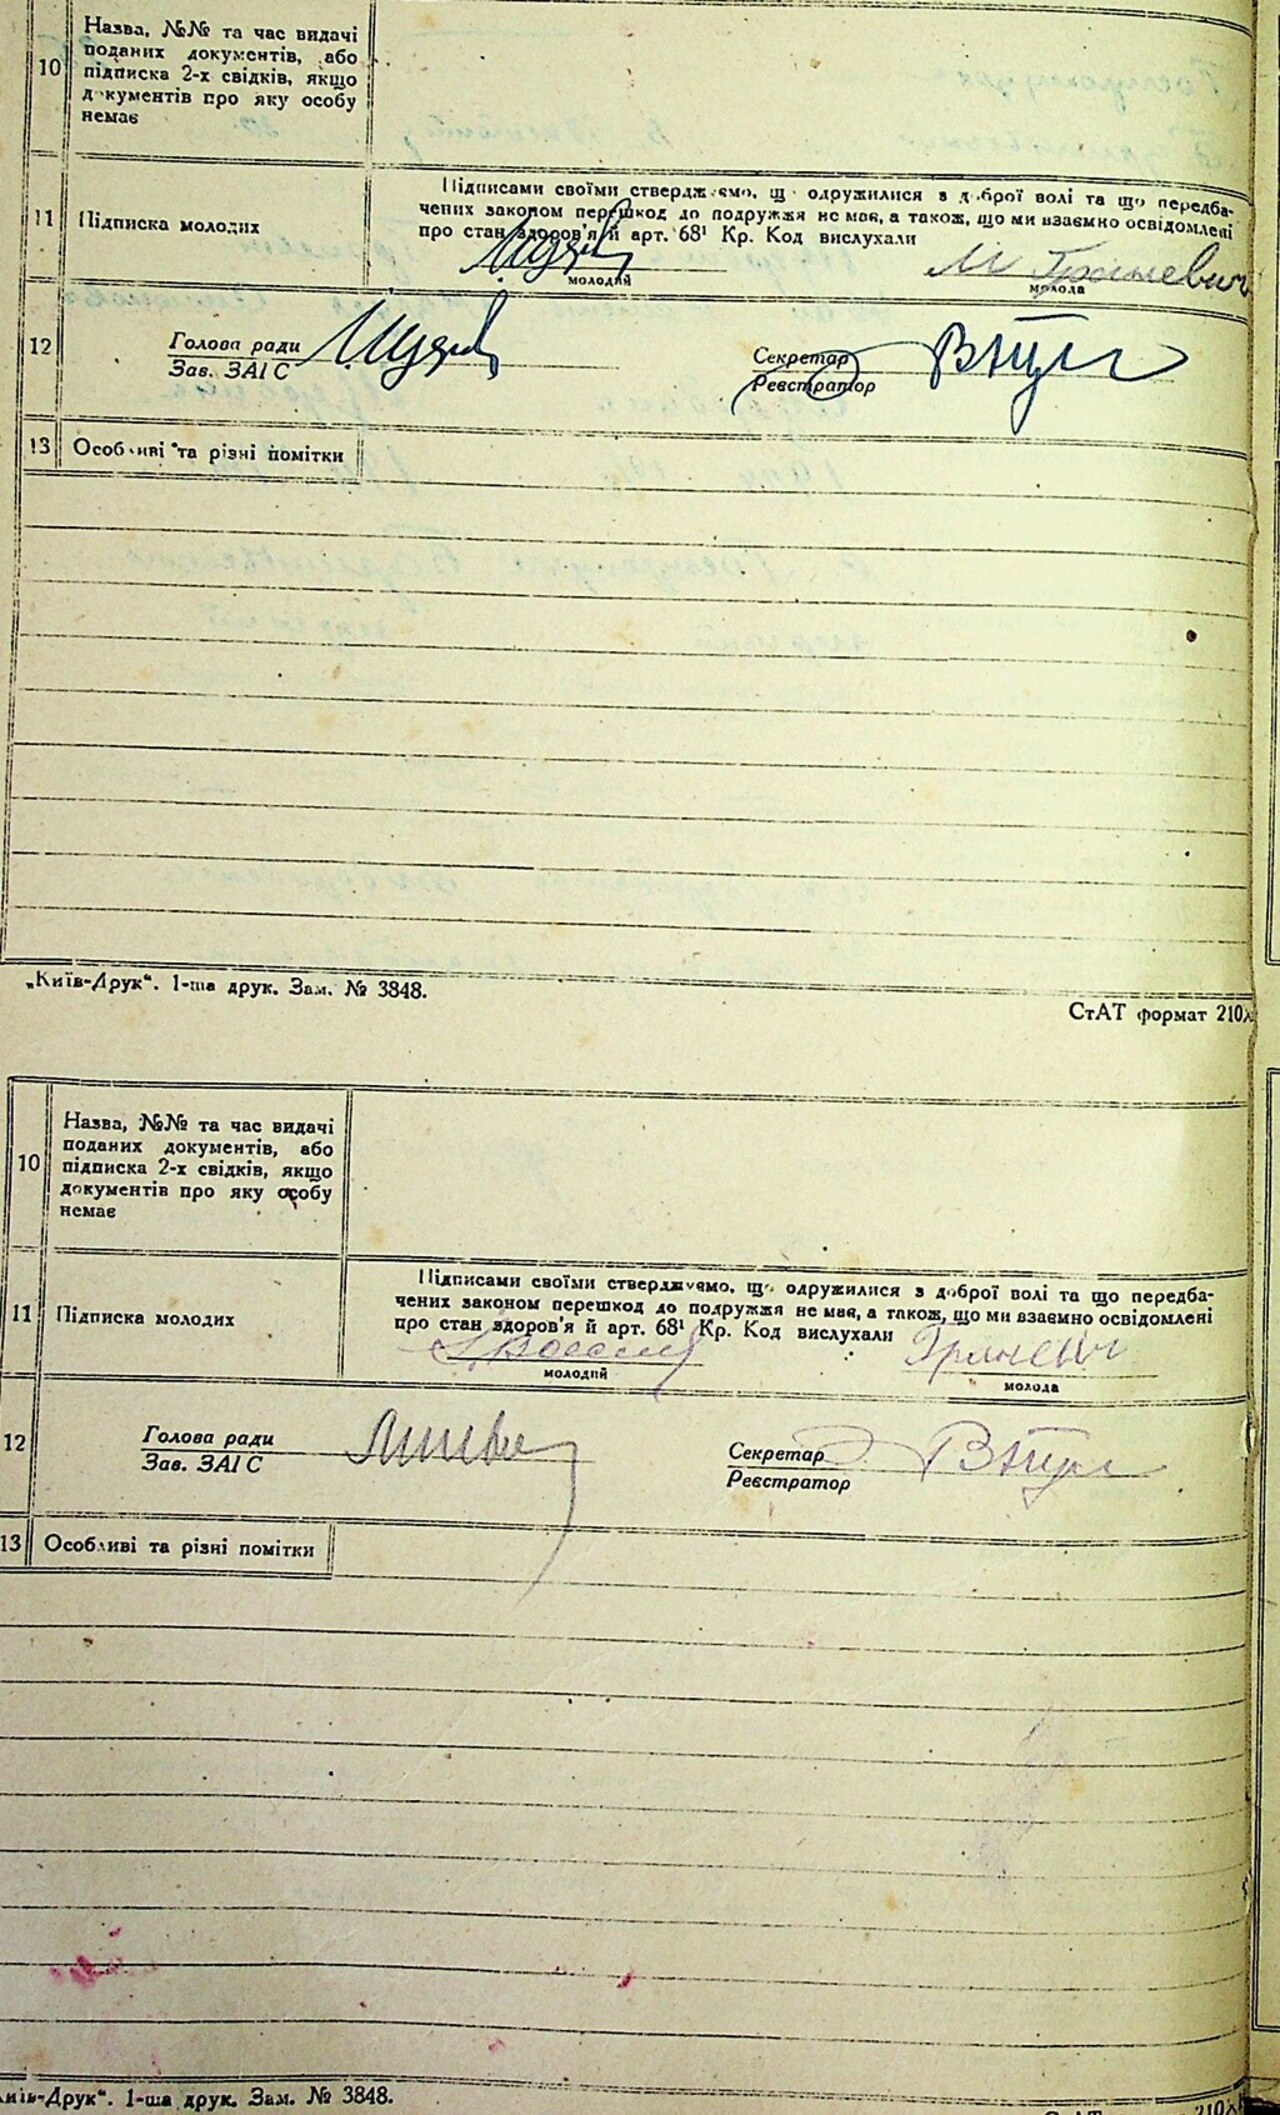 10
Назва, №№ та час видачі
поданих документів, або
підписка 2-х свідків, якщо
документів про яку особу
немає
11
Підписка молодих
Підписами своїми стверджуємо, що одружилися з доброї волі та що передба-
чених законом перешкод до подружжя не має, а також, що ми взаємно освідомлені
про стан здоров'я й арт. 68¹ Кр. Код вислухали
М Граневич
молодий
молода
12
Голова ради
Зав. ЗАГС
Секретар
Реєстратор
13
Особливі та різні помітки
„Київ-Друк“. 1-ша друк. Зам. № 3848.
СтАТ формат 210х
10
Назва, №№ та час видачі
поданих документів, або
підписка 2-х свідків, якщо
документів про яку особу
немає
11
Підписка молодих
Підписами своїми стверджуємо, що одружилися з доброї волі та що передба-
чених законом перешкод до подружжя не має, а також, що ми взаємно освідомлені
про стан здоров'я й арт. 68¹ Кр. Код вислухали
Граневич
молодий
молода
12
Голова ради
Зав. ЗАГС
Секретар
Реєстратор
13
Особливі та різні помітки
иїв-Друк“. 1-ша друк. Зам. № 3848.
СтАТ 210х